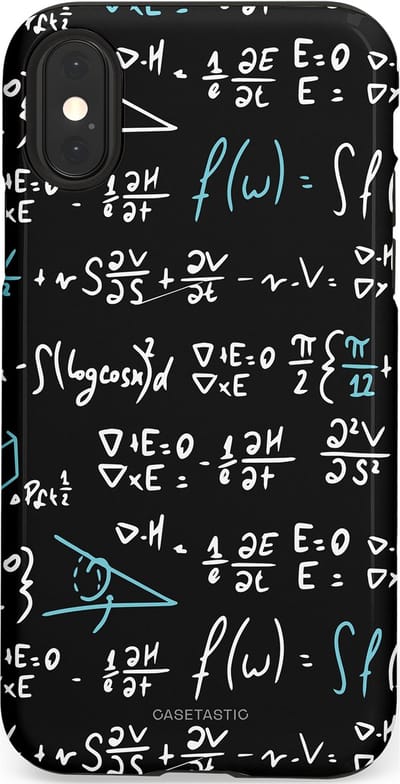 ∇·H = 1/e ∂E/∂t E=0 ∇·
E = ∇×
+E=0
×E - 1/e ∂H/∂t f(ω) = ∫f(
+ rS ∂V/∂S + ∂V/∂t - r·V = ∇·H
∇×
- ∫(log cosx)²d ∇+E=0 π/2 {π/12 +
∇×E
∇+E=0
∇×E = - 1/e ∂H/∂t ∂²V/∂S²
∇·H = 1/e ∂E/∂t E=0 ∇·
E = ∇×
0}
+E=0
×E - 1/e ∂H/∂t f(ω) = ∫f(
CASETASTIC
+ rS ∂V/∂S + ∂V/∂t - r·V = ∇·H
∇×